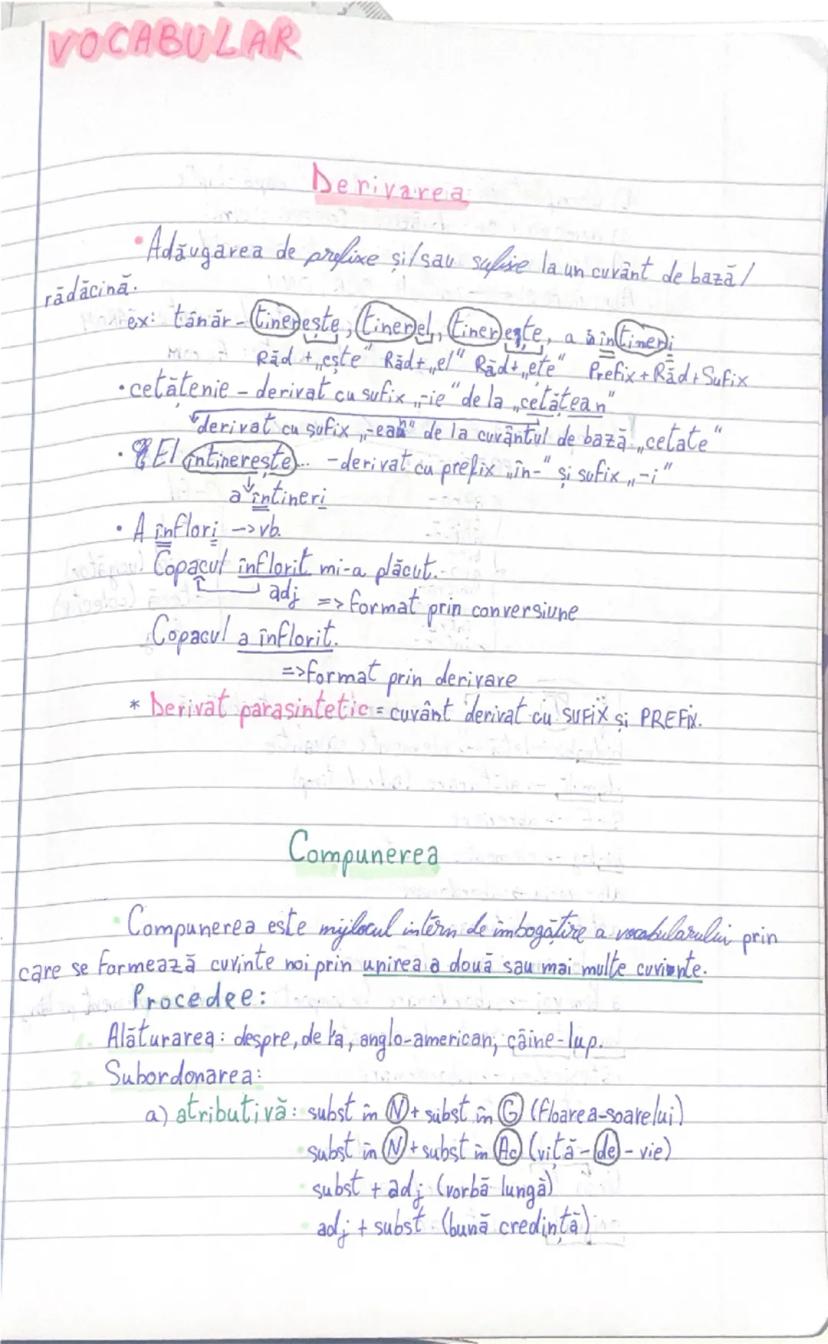 VOCABULAR
Derivarea
• Adăugarea de prefixe și/sau sufixe la un cuvânt de bază/
rădăcină.
ex: tânăr - tinerește, tinerel, tinerește, a întineri
Răd + „ește" Răd + „el" Răd + „ete" Prefix + Răd + Sufix
• cetățenie - derivat cu sufix „-ie" de la „cetățean"
derivat cu sufix „-ean" de la cuvântul de bază „cetate"
• El întinerește... - derivat cu prefix „în-" și sufix „-i"
a întineri
• A înflori -> vb.
Copacul înflorit mi-a plăcut.
adj => format prin conversiune
Copacul a înflorit.
=> format prin derivare
* Derivat parasintetic = cuvânt derivat cu SUFIX și PREFIX.
Compunerea
• Compunerea este mijlocul intern de îmbogățire a vocabularului prin
care se formează cuvinte noi prin unirea a două sau mai multe cuvinte.
Procedee:
1. Alăturarea: despre, de la, anglo-american, câine-lup.
2. Subordonarea:
a) atributivă: subst în N + subst în G (floarea-soarelui)
• subst în N + subst în Ac (viță-de-vie)
• subst + adj (vorbă lungă)
• adj + subst (bună credință)